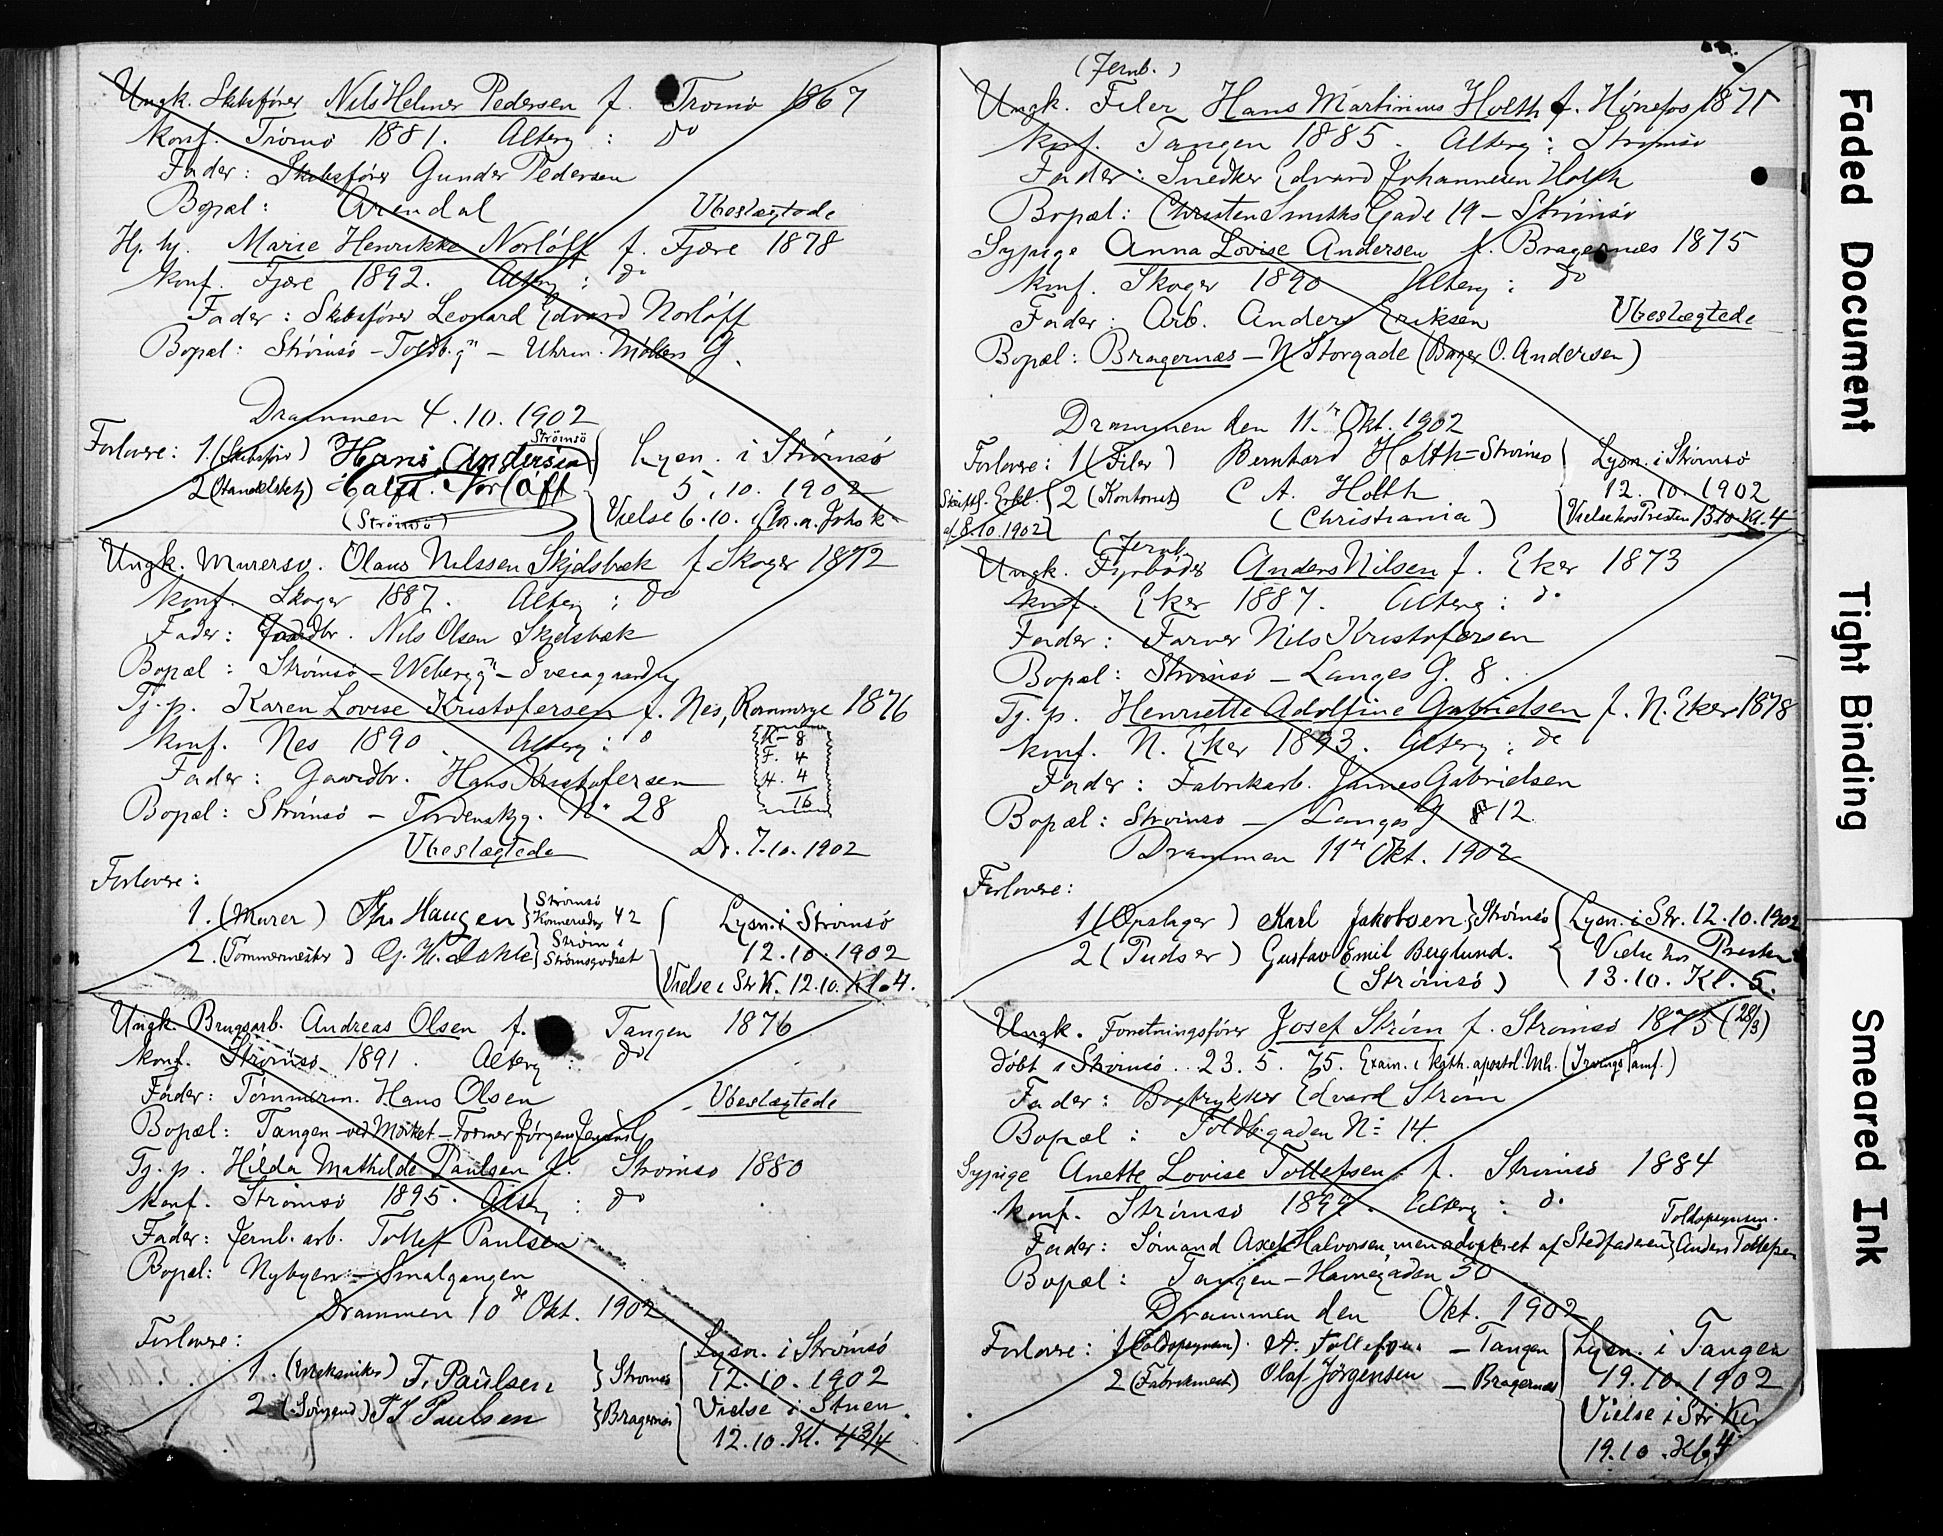 Ungk. Skibsfører Nils Helmer Pedersen f. Tromø 1867
Konf. Trømø 1881. Alterg: do
Fader: Skibsfører Gunder Pedersen
Bopæl: Arendal Ubeslægtede
Hj. hj. Marie Henrikke Norløff f. Fjære 1878
Konf. Fjære 1892. Alterg: do
Fader: Skibsfører Leonard Edvard Norløff
Bopæl: Strømsø - Toldb.gn - Uhrm. Møllers G.
Drammen 4.10.1902
Forlovere: 1. (Skibsfør) Hans Andersen Strømsø
2 (Handelsbetj) Halfd. Norløff
(Strømsø)
Lysn. i Strømsø
5.10.1902
Vielse 6.10. i
Ungk. Murersv. Olaus Nilssen Skjelsbæk f. Skoger 1872
Konf. Skoger 1887. Alterg: do
Fader: Gaardbr. Nils Olsen Skjelsbæk
Bopæl: Strømsø - Webergn - Sveagaarden
Tj. p. Karen Lovise Kristofersen f. Nes, Romerige 1876
Konf. Nes 1890. Alterg: o
Fader: Gaardbr. Hans Kristofersen
Bopæl: Strømsø - Tordenskg. No 28
K - 8
F. 4
A. 4
16
Ubeslægtede Dr. 7.10.1902
Forlovere:
1. (Murer) Th. Haugen Strømsø Konnerudg 42
2. (Tømmermester) G. H. Dahle Strøm i Strømsgodset
Lysn. i Strømsø
12.10.1902
Vielse i Str K. 12.10. Kl. 4.
Ungk. Brugsarb. Andreas Olsen f. Tangen 1876
Konf. Strømsø 1891. Alterg: do
Fader: Tømmerm. Hans Olsen Ubeslægtede
Bopæl: Tangen - ved Mærket - Former Jørgen
Tj. p. Hilda Mathilde Paulsen f. Strømsø 1880
Konf. Strømsø 1895. Alterg: do
Fader: Jernb. arb. Tollef Paulsen
Bopæl: Nybyen - Smalgangen
Drammen 10de Okt. 1902
Forlovere:
1. (Mekaniker) T. Paulsen Strømsø
2 (Sømand) T J Paulsen Bragernæs
Lysn. i Strømsø
12.10.1902
Vielse i Stuen
12.10. Kl. 4 3/4
(Jernb.)
Ungk. Filer Hans Martinius Holth f. Hønefos 1871
Konf. Tangen 1885. Alterg: Strømsø
Fader: Snedker Edvard Johannesen Holth
Bopæl: Christen Smiths Gade 19 - Strømsø
Sypige Anna Lovise Andersen f. Bragernæs 1875
Konf. Skoger 1890 Alterg: do
Fader: Arb. Anders Eriksen Ubeslægtede
Bopæl: Bragernæs - N Storgade (Bager O. Andersen)
Drammen den 11te Okt. 1902
Forlovere: 1 (Filer) Bernhard Holth - Strømsø
Skriftl. Erkl. af 8.10.1902 2 (Kontorist) C A. Holth
(Christiania)
Lysn. i Strømsø
12.10.1902
Vielse hos Presten 13.10. Kl. 4
(Jernb.
Ungk. Fyrbøder Anders Nilsen f. Eker 1873
Konf. Eker 1887. Alterg: do
Fader: Farver Nils Kristofersen
Bopæl: Strømsø - Langes G. 8.
Tj. p. Henriette Adolfine Gabrielsen f. N. Eker 1878
Konf. N. Eker 1893. Alterg: do
Fader: Fabrikarb. James Gabrielsen
Bopæl: Strømsø - Langes G 12.
Drammen 11te Okt. 1902
Forlovere:
1 (Opslager) Karl Jakobsen Strømsø
2 (Pudser) Gustav Emil Berglund.
(Strømsø)
Lysn. i Str. 12.10.1902
Vielse hos Presten
13.10. Kl. 5.
Ungk. Forretningsfører Josef Strøm f. Strømsø 1875 (28/3)
Døbt i Strømsø . 23.5.75. Exam. i Kath. apostol. Mh. (Irvings Samf.)
Fader: Bogtrykker Edvard Strøm
Bopæl: Toldbgaden No 14.
Sypige Anette Lovise Tollefsen f. Strømsø 1884
Konf. Strømsø 1899. Alterg: do
Toldopsynsm.
Fader: Sømand Axel Halvorsen, men adopteret af Stedfaderen Anders Tollefsen
Bopæl: Tangen - Havnegaden 30
Drammen den Okt. 1902
Forlovere: 1 (Toldopsynsm). A. Tollefsen - Tangen
2 (Fabrikmest) Olaf Jørgensen - Bragernæs
Lysn. i Tangen
19.10.1902
Vielse i Str Ker
19.10. Kl 4
Faded Document
Tight Binding
Smeared Ink